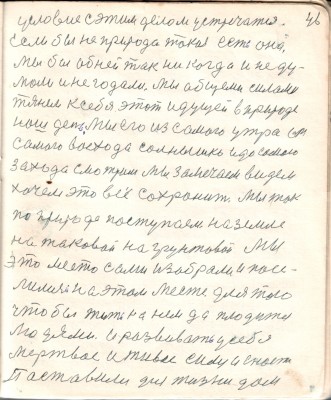 46
условие с этим делом устречатся.
если бы не природа такая есть она,
Мы бы об ней так никогда и не ду-
мали и не гадали. Мы общеми силами
тянем к себя этот идущей в природе
наш день, Мы его из самого утра
самого восхода солнышко и до самого
захода смотрим Мы замечаем видем
хочем это всё сохранит. Мы так
по природе поступаем на земле
на таковой на грунтовой Мы
это место сами избрали и посе-
лились на этом месте для того
чтобы жить на нем да плодится
людями. и развивать у себя
мертвое и живое силу и
Поставили для жизни дом